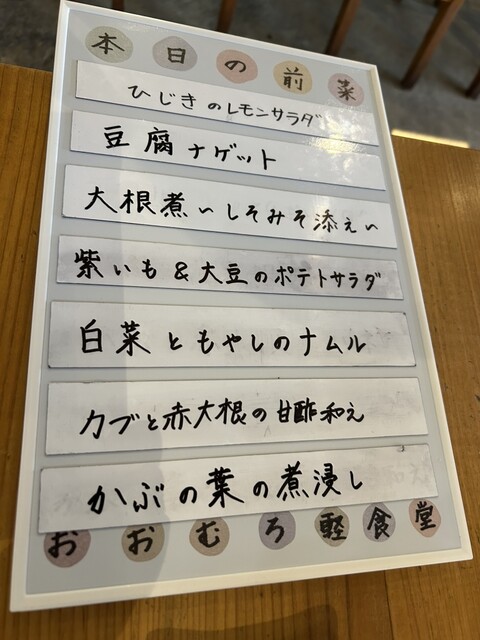 本日の前菜
ひじきのレモンサラダ
豆腐ナゲット
大根煮〜しそみそ添え〜
紫いも&大豆のポテトサラダ
白菜ともやしのナムル
カブと赤大根の甘酢和え
かぶの葉の煮浸し
おおむろ軽食堂